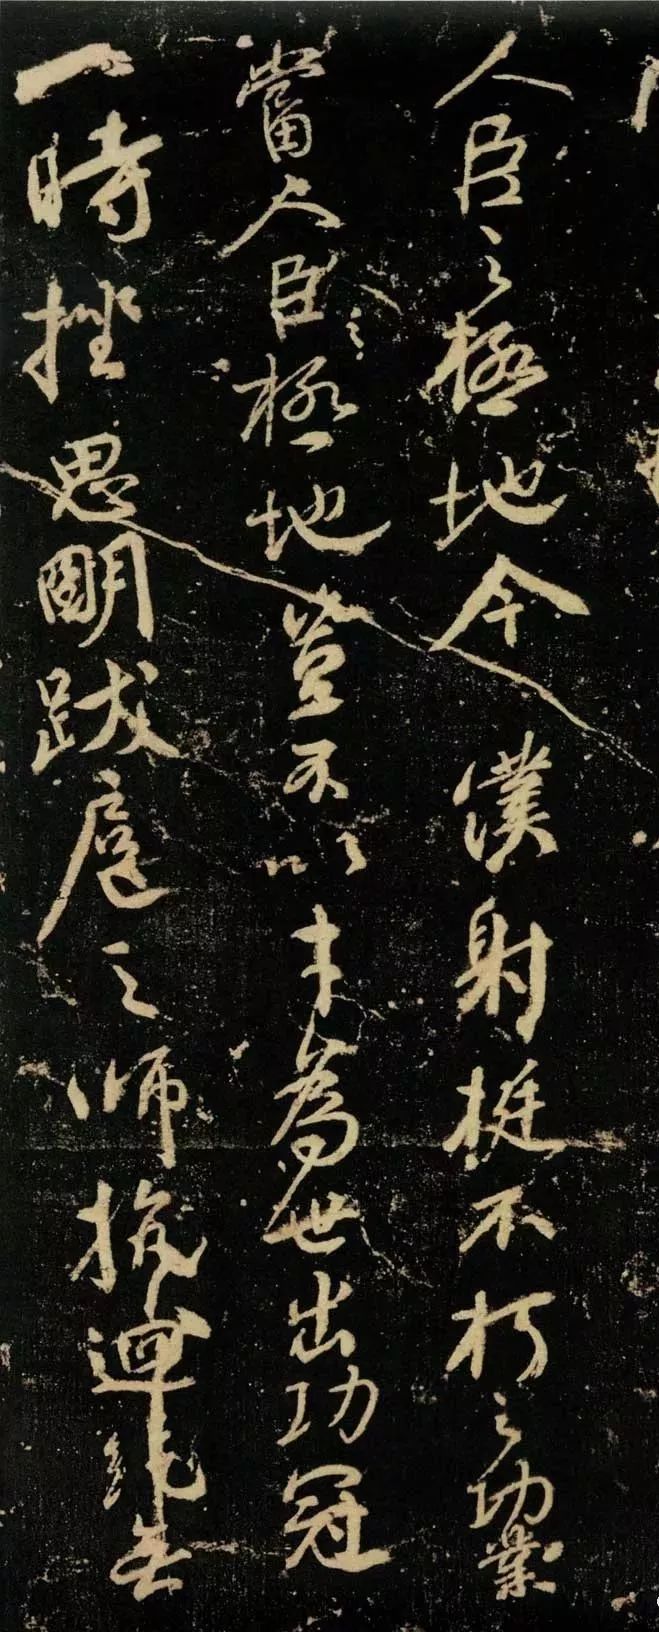 人臣之極地今僕射挺不朽之功業
當人臣之極地豈不以才為世出功冠
一時挫思明跋扈之師抗迴紇無